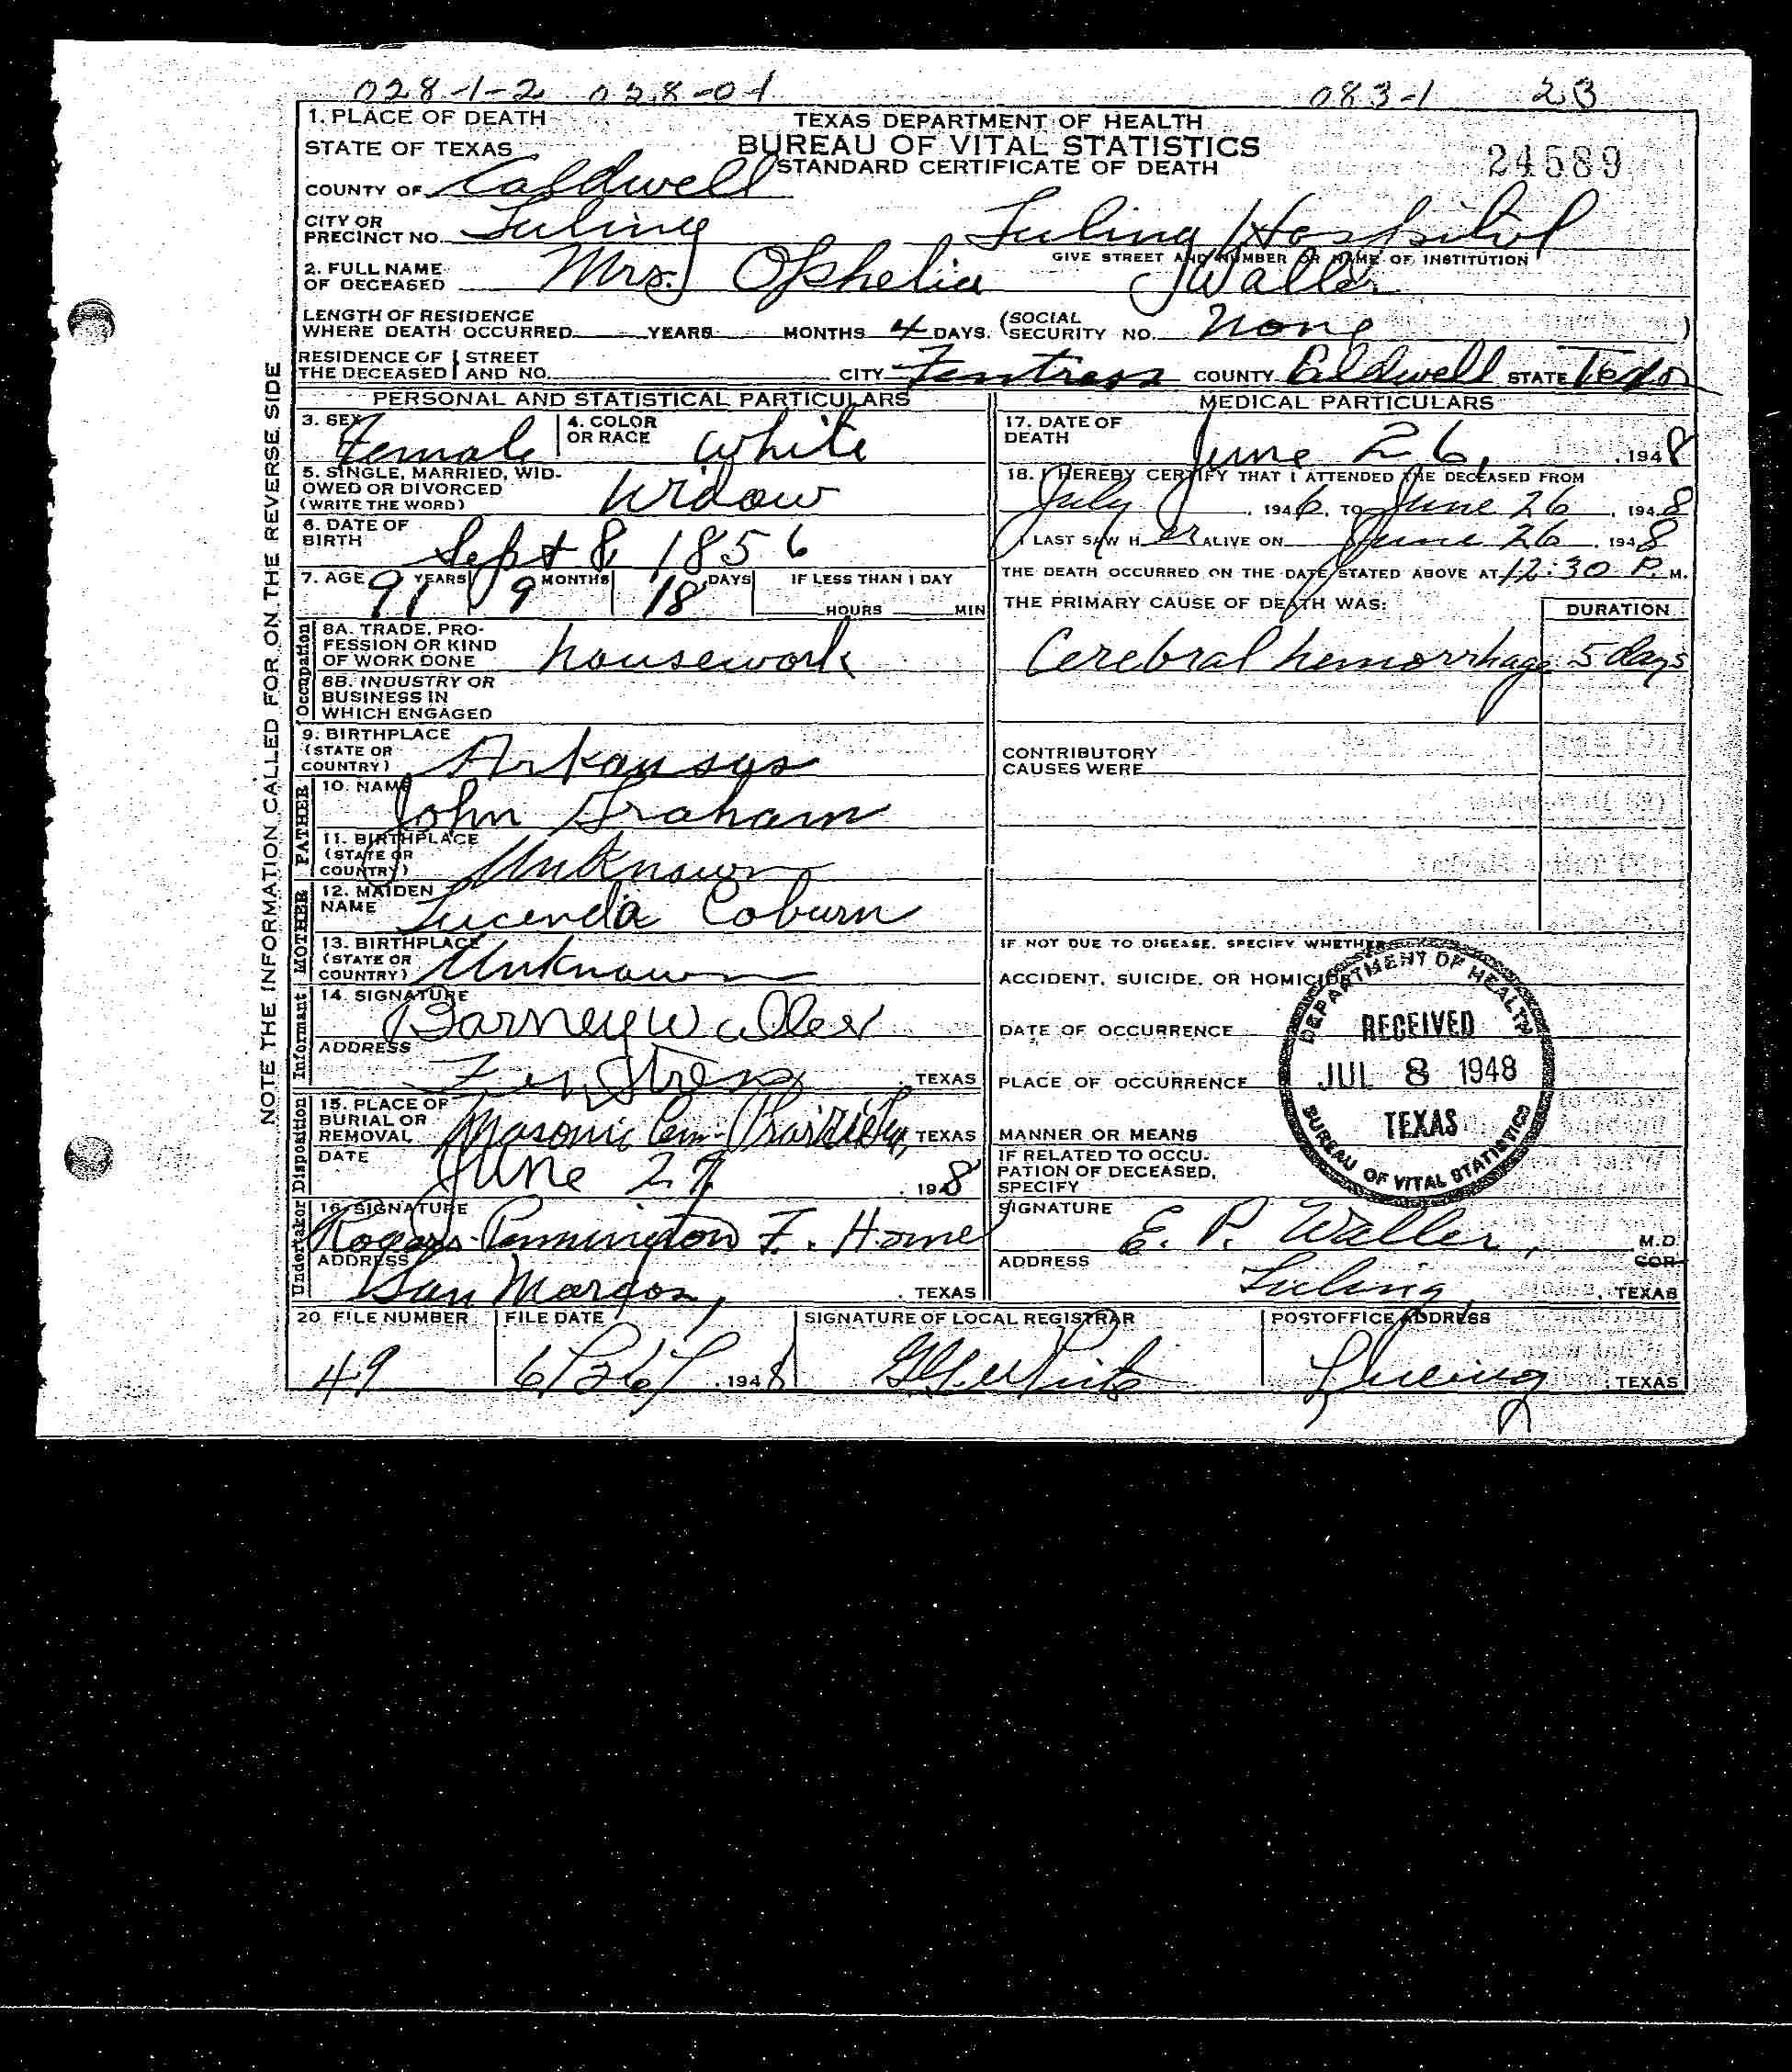 028-1-2 028-01 083-1 23
1. PLACE OF DEATH
TEXAS DEPARTMENT OF HEALTH
STATE OF TEXAS
BUREAU OF VITAL STATISTICS
STANDARD CERTIFICATE OF DEATH
24589
COUNTY OF Caldwell
CITY OR PRECINCT NO. Luling Luling Hospital
GIVE STREET AND NUMBER OR NAME OF INSTITUTION
2. FULL NAME OF DECEASED Mrs. Ophelia Waller
LENGTH OF RESIDENCE WHERE DEATH OCCURRED YEARS MONTHS 4 DAYS. (SOCIAL SECURITY NO. None )
RESIDENCE OF THE DECEASED { STREET AND NO. CITY Fentress COUNTY Caldwell STATE Texas
PERSONAL AND STATISTICAL PARTICULARS
3. SEX Female 4. COLOR OR RACE White
5. SINGLE, MARRIED, WIDOWED OR DIVORCED (WRITE THE WORD) Widow
6. DATE OF BIRTH Sept 8, 1856
7. AGE 91 YEARS 9 MONTHS 18 DAYS IF LESS THAN 1 DAY HOURS MIN
Occupation
8A. TRADE, PROFESSION OR KIND OF WORK DONE housework
8B. INDUSTRY OR BUSINESS IN WHICH ENGAGED
9. BIRTHPLACE (STATE OR COUNTRY) Arkansas
FATHER
10. NAME John Graham
11. BIRTHPLACE (STATE OR COUNTRY) Unknown
MOTHER
12. MAIDEN NAME Lucenda Coburn
13. BIRTHPLACE (STATE OR COUNTRY) Unknown
Informant
14. SIGNATURE Barney Waller
ADDRESS Fenstress TEXAS
Disposition
15. PLACE OF BURIAL OR REMOVAL Masonic Cem- Prairie Lea, TEXAS
DATE June 27 1948
Undertaker
16. SIGNATURE Rogers-Pennington F. Home
ADDRESS San Marcos, TEXAS
MEDICAL PARTICULARS
17. DATE OF DEATH June 26, 1948
18. I HEREBY CERTIFY THAT I ATTENDED THE DECEASED FROM
July 1946, TO June 26, 1948
I LAST SAW H er ALIVE ON June 26, 1948
THE DEATH OCCURRED ON THE DATE STATED ABOVE AT 12:30 P. M.
THE PRIMARY CAUSE OF DEATH WAS: DURATION
Cerebral hemorrhage 5 days
CONTRIBUTORY CAUSES WERE
IF NOT DUE TO DISEASE, SPECIFY WHETHER
ACCIDENT, SUICIDE, OR HOMICIDE
DATE OF OCCURRENCE
PLACE OF OCCURRENCE
MANNER OR MEANS
IF RELATED TO OCCUPATION OF DECEASED, SPECIFY
DEPARTMENT OF HEALTH
RECEIVED
JUL 8 1948
TEXAS
BUREAU OF VITAL STATISTICS
SIGNATURE E. P. Waller, M.D.
COR
ADDRESS Luling, TEXAS
20 FILE NUMBER 49
FILE DATE 6/26/ 1948
SIGNATURE OF LOCAL REGISTRAR
POSTOFFICE ADDRESS Luling TEXAS
NOTE THE INFORMATION CALLED FOR ON THE REVERSE SIDE